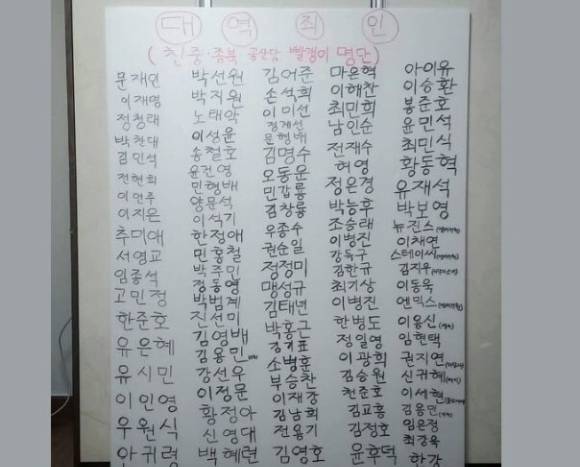 대역죄인
(친중·종북 공산당 빨갱이 명단)
문재인
이재명
정청래
박찬대
김민석
전현희
이언주
이지은
추미애
서영교
임종석
고민정
한준호
유은혜
유시민
이인영
우원식
안귀령
박선원
박지원
노태악
이성윤
송철호
윤건영
민형배
양문석
이석기
한정애
민홍철
박주민
정동영
박범계
진선미
김영배
김용민
강선우
이정문
황정아
신영대
백혜련
김어준
손석희
이미선
정계선
문형배
김명수
오동운
민갑룡
김창룡
우종수
권순일
정정미
맹성규
김태년
박홍근
소병훈
부승찬
이재강
김남희
전용기
김영호
마은혁
이해찬
최민희
남인순
전재수
허영
정은경
박능후
조승래
이병진
강득구
김한규
최기상
이병진
한병도
정일영
이광희
김승원
천준호
김교흥
김정호
윤후덕
아이유
이승환
봉준호
윤민석
최민식
황동혁
유재석
박보영
뉴진스
이채연
스테이씨
김지우
이동욱
엔믹스
이용신
임현택
권지연
신귀혜
이서현
김용민
임은정
최강욱
한강